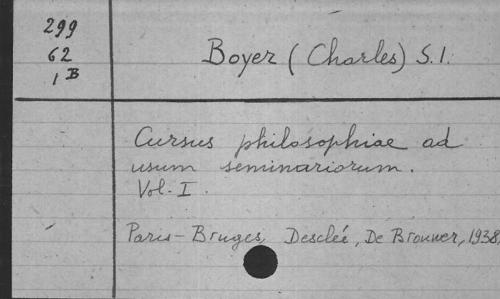 299
62
1 B
Boyer (Charles) S.I.
Cursus philosophiae ad
usum seminariorum.
Vol. I.
Paris-Bruges, Desclée, De Brouwer, 1938,